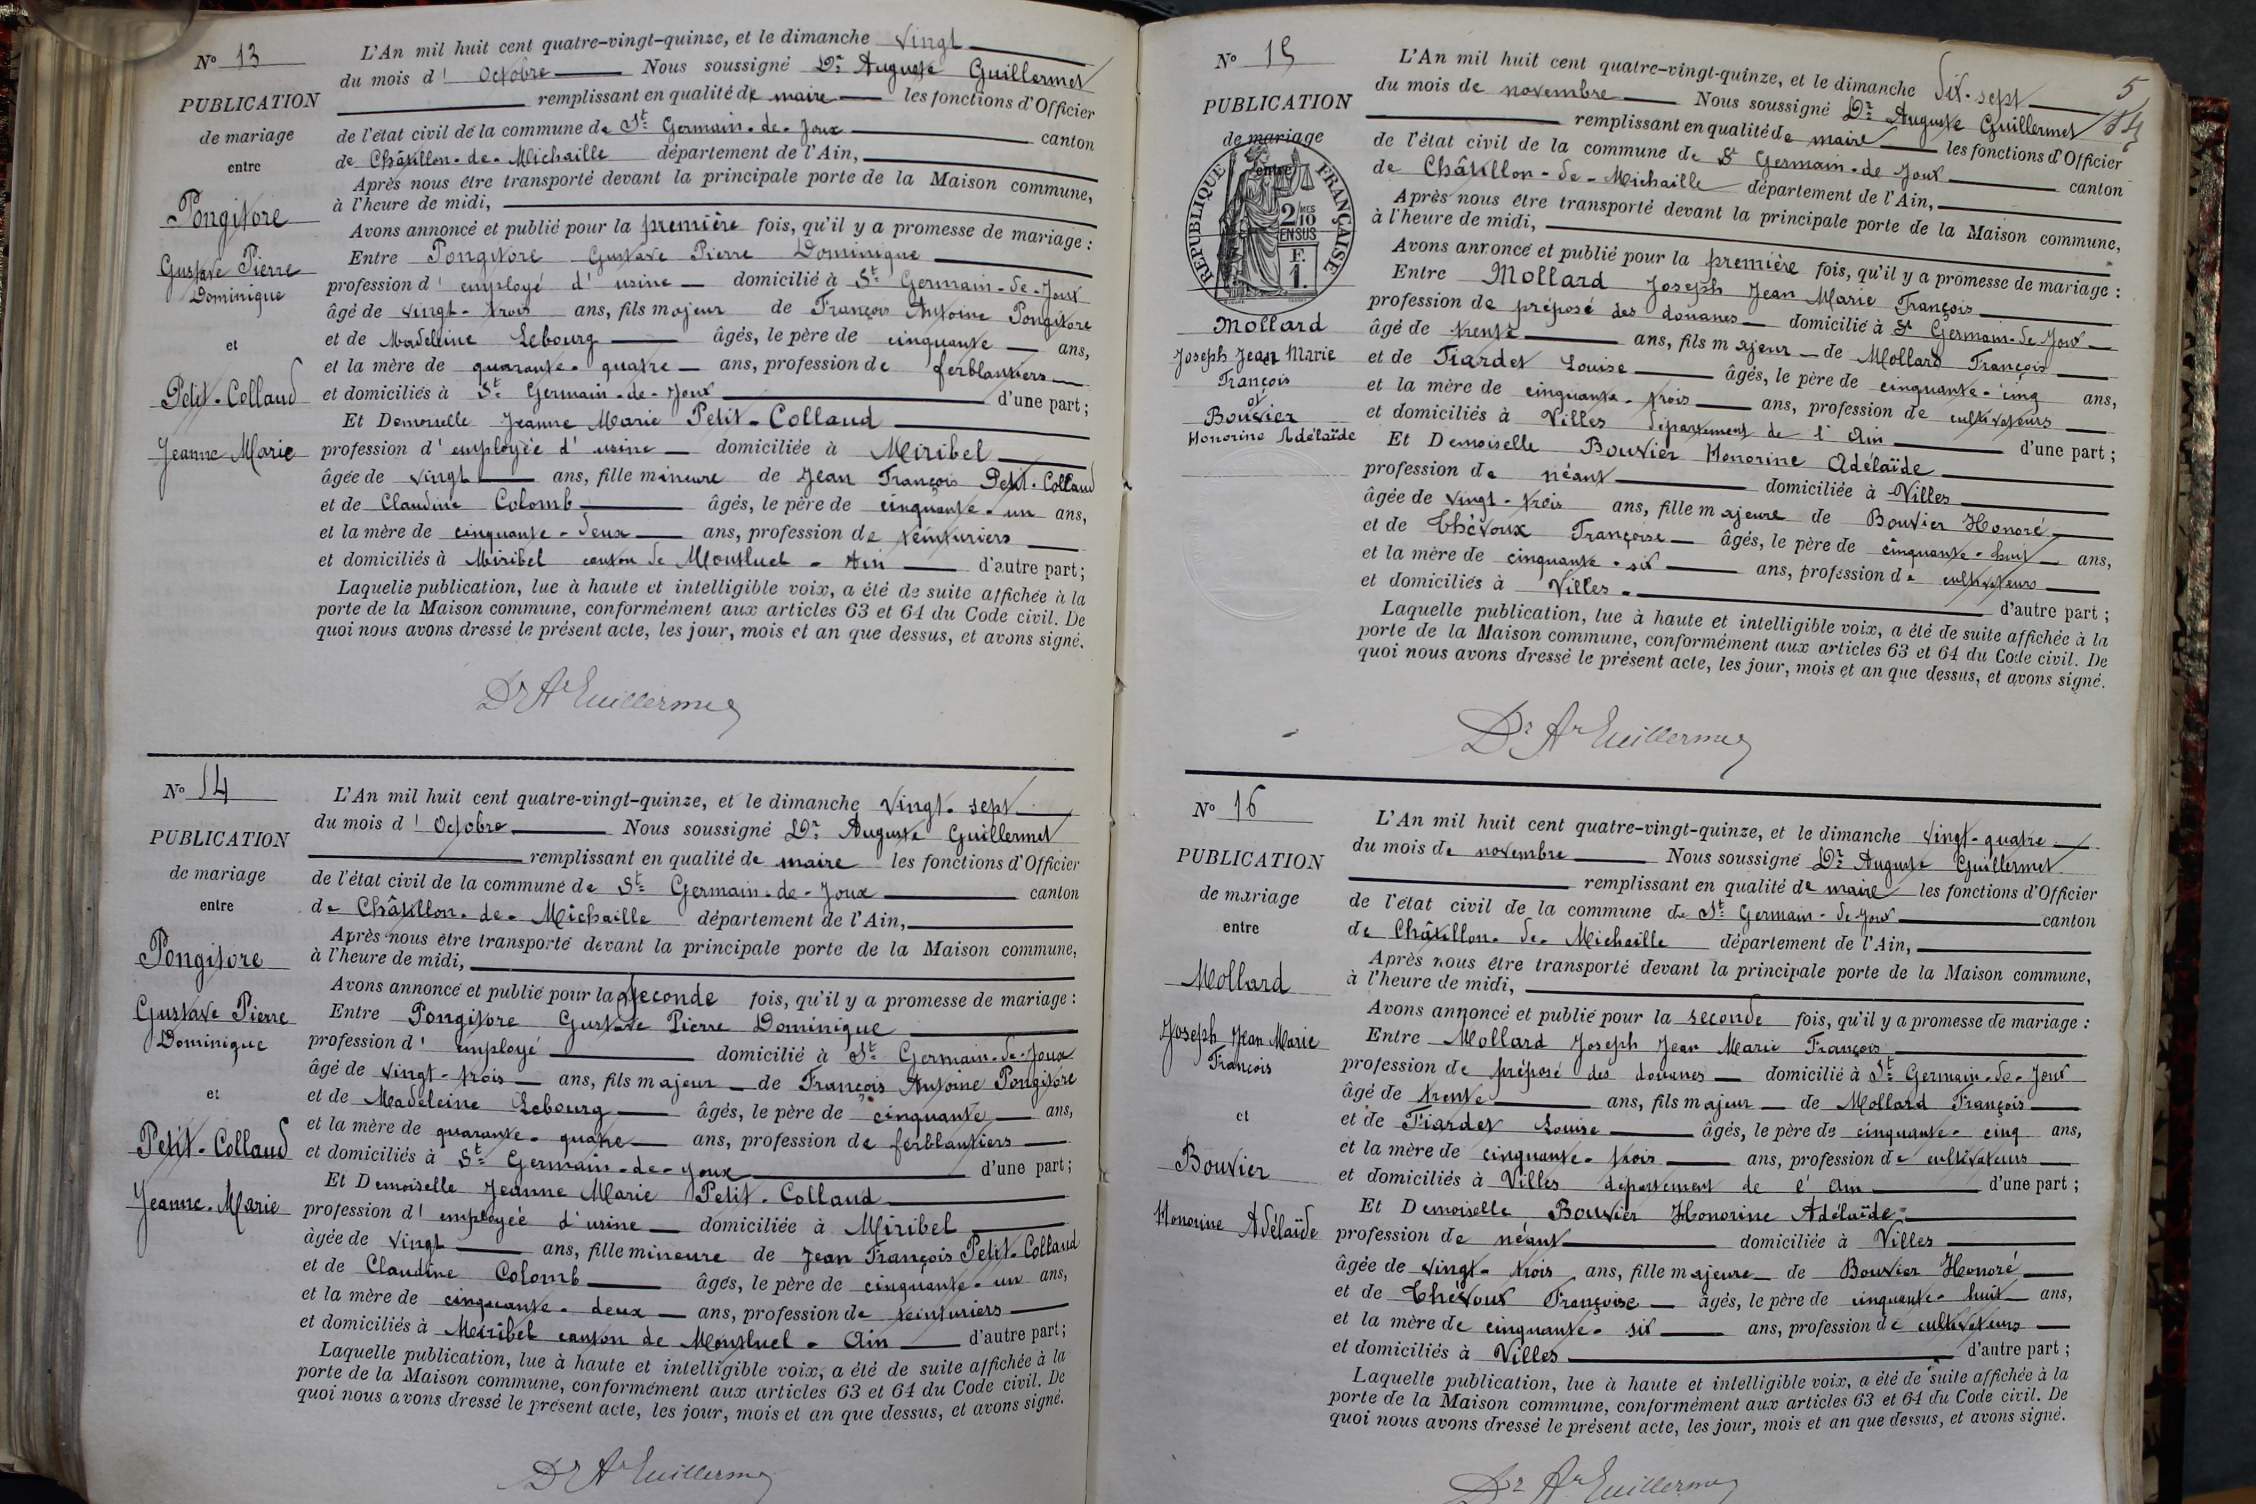 N° 13
PUBLICATION
de mariage
entre
Pongitore
Gustave Pierre
Dominique
et
Petit-Colland
Jeanne Marie
L'An mil huit cent quatre-vingt-quinze, et le dimanche vingt
du mois d' Octobre Nous soussigné Dr Auguste Guillermet
remplissant en qualité de maire les fonctions d'Officier
de l'état civil de la commune de St Germain-de-Joux canton
de Châtillon-de-Michaille département de l'Ain,
Après nous être transporté devant la principale porte de la Maison commune,
à l'heure de midi,
Avons annoncé et publié pour la première fois, qu'il y a promesse de mariage :
Entre Pongitore Gustave Pierre Dominique
profession d' employé d'usine domicilié à St Germain-de-Joux
âgé de vingt-trois ans, fils majeur de François Antoine Pongitore
et de Madeleine Lebourg âgés, le père de cinquante ans,
et la mère de quarante-quatre ans, profession de ferblantiers
et domiciliés à St Germain-de-Joux d'une part ;
Et Demoiselle Jeanne Marie Petit-Colland
profession d' employée d'usine domiciliée à Miribel
âgée de vingt ans, fille mineure de Jean François Petit-Colland
et de Claudine Colomb âgés, le père de cinquante-un ans,
et la mère de cinquante-deux ans, profession de teinturiers
et domiciliés à Miribel canton de Montluel - Ain d'autre part ;
Laquelle publication, lue à haute et intelligible voix, a été de suite affichée à la
porte de la Maison commune, conformément aux articles 63 et 64 du Code civil. De
quoi nous avons dressé le présent acte, les jour, mois et an que dessus, et avons signé.
Dr Ate Guillermet
N° 14
PUBLICATION
de mariage
entre
Pongitore
Gustave Pierre
Dominique
et
Petit-Colland
Jeanne-Marie
L'An mil huit cent quatre-vingt-quinze, et le dimanche vingt-sept
du mois d' Octobre Nous soussigné Dr Auguste Guillermet
remplissant en qualité de maire les fonctions d'Officier
de l'état civil de la commune de St Germain-de-Joux canton
de Châtillon-de-Michaille département de l'Ain,
Après nous être transporté devant la principale porte de la Maison commune,
à l'heure de midi,
Avons annoncé et publié pour la seconde fois, qu'il y a promesse de mariage :
Entre Pongitore Gustave Pierre Dominique
profession d' employé domicilié à St Germain-de-Joux
âgé de vingt-trois ans, fils majeur de François Antoine Pongitore
et de Madeleine Lebourg âgés, le père de cinquante ans,
et la mère de quarante-quatre ans, profession de ferblantiers
et domiciliés à St Germain-de-Joux d'une part ;
Et Demoiselle Jeanne Marie Petit-Colland
profession d' employée d'usine domiciliée à Miribel
âgée de vingt ans, fille mineure de Jean François Petit-Colland
et de Claudine Colomb âgés, le père de cinquante-un ans,
et la mère de cinquante-deux ans, profession de teinturiers
et domiciliés à Miribel canton de Montluel - Ain d'autre part ;
Laquelle publication, lue à haute et intelligible voix, a été de suite affichée à la
porte de la Maison commune, conformément aux articles 63 et 64 du Code civil. De
quoi nous avons dressé le présent acte, les jour, mois et an que dessus, et avons signé.
Dr Ate Guillermet
5
N° 15
PUBLICATION
de mariage
entre
RÉPUBLIQUE FRANÇAISE
2/10 MES
EN SUS
F.
1.
Mollard
Joseph Jean Marie
François
et
Bouvier
Honorine Adélaïde
L'An mil huit cent quatre-vingt-quinze, et le dimanche dix-sept
du mois de novembre Nous soussigné Dr Auguste Guillermet
remplissant en qualité de maire les fonctions d'Officier
de l'état civil de la commune de St Germain-de-Joux canton
de Châtillon-de-Michaille département de l'Ain,
Après nous être transporté devant la principale porte de la Maison commune,
à l'heure de midi,
Avons annoncé et publié pour la première fois, qu'il y a promesse de mariage :
Entre Mollard Joseph Jean Marie François
profession de préposé des douanes domicilié à St Germain-de-Joux
âgé de trente ans, fils majeur de Mollard François
et de Tiardet Louise âgés, le père de cinquante-cinq ans,
et la mère de cinquante-trois ans, profession de cultivateurs
et domiciliés à Villes département de l'Ain d'une part ;
Et Demoiselle Bouvier Honorine Adélaïde
profession de néant domiciliée à Villes
âgée de vingt-trois ans, fille majeure de Bouvier Honoré
et de Thévoux Françoise âgés, le père de cinquante-huit ans,
et la mère de cinquante-six ans, profession de cultivateurs
et domiciliés à Villes d'autre part ;
Laquelle publication, lue à haute et intelligible voix, a été de suite affichée à la
porte de la Maison commune, conformément aux articles 63 et 64 du Code civil. De
quoi nous avons dressé le présent acte, les jour, mois et an que dessus, et avons signé.
Dr Ate Guillermet
N° 16
PUBLICATION
de mariage
entre
Mollard
Joseph Jean Marie
François
et
Bouvier
Honorine Adélaïde
L'An mil huit cent quatre-vingt-quinze, et le dimanche vingt-quatre
du mois de novembre Nous soussigné Dr Auguste Guillermet
remplissant en qualité de maire les fonctions d'Officier
de l'état civil de la commune de St Germain-de-Joux canton
de Châtillon-de-Michaille département de l'Ain,
Après nous être transporté devant la principale porte de la Maison commune,
à l'heure de midi,
Avons annoncé et publié pour la seconde fois, qu'il y a promesse de mariage :
Entre Mollard Joseph Jean Marie François
profession de préposé des douanes domicilié à St Germain-de-Joux
âgé de trente ans, fils majeur de Mollard François
et de Tiardet Louise âgés, le père de cinquante-cinq ans,
et la mère de cinquante-trois ans, profession de cultivateurs
et domiciliés à Villes département de l'Ain d'une part ;
Et Demoiselle Bouvier Honorine Adélaïde
profession de néant domiciliée à Villes
âgée de vingt-trois ans, fille majeure de Bouvier Honoré
et de Thévoux Françoise âgés, le père de cinquante-huit ans,
et la mère de cinquante-six ans, profession de cultivateurs
et domiciliés à Villes d'autre part ;
Laquelle publication, lue à haute et intelligible voix, a été de suite affichée à la
porte de la Maison commune, conformément aux articles 63 et 64 du Code civil. De
quoi nous avons dressé le présent acte, les jour, mois et an que dessus, et avons signé.
Dr Ate Guillermet